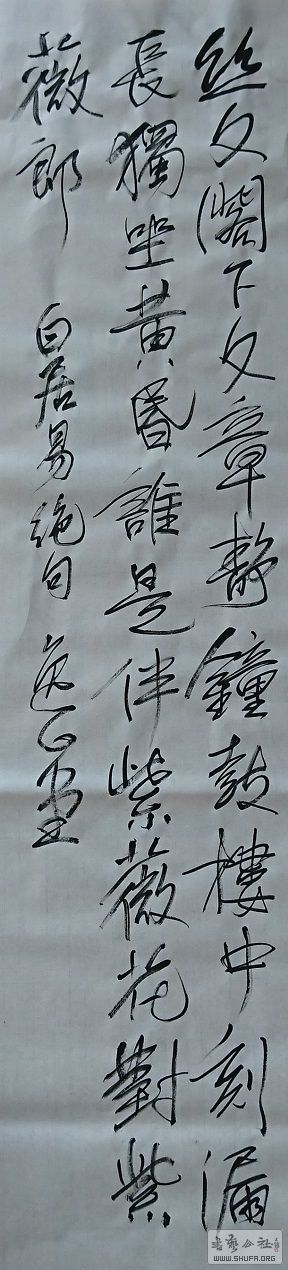 丝文閣下文章靜鐘鼓樓中刻漏
長獨坐黄昏誰是伴紫薇花對紫
薇郎
白居易绝句
書藝公社
WWW.SHUFA.ORG